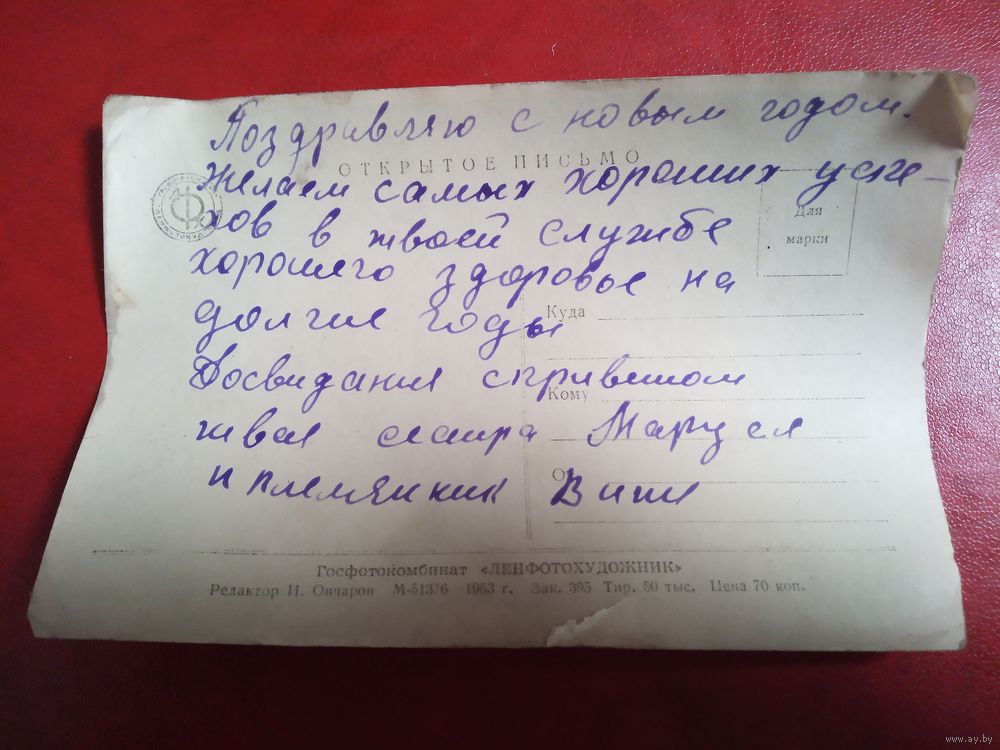 Поздравляю с новым годом.
ОТКРЫТОЕ ПИСЬМО
Желаем самых хороших успе-
хов в твоей службе
Для
марки
хорошего здоровье на
долгие годы
Куда
Досвидания сприветом
Кому
твоя сестра Маруся
и племянник Витя
Госфотокомбинат «ЛЕНФОТОХУДОЖНИК»
Редактор И. Овчаров М-51376 1953 г. Зак. 395 Тир. 50 тыс. Цена 70 коп.
www.ay.by